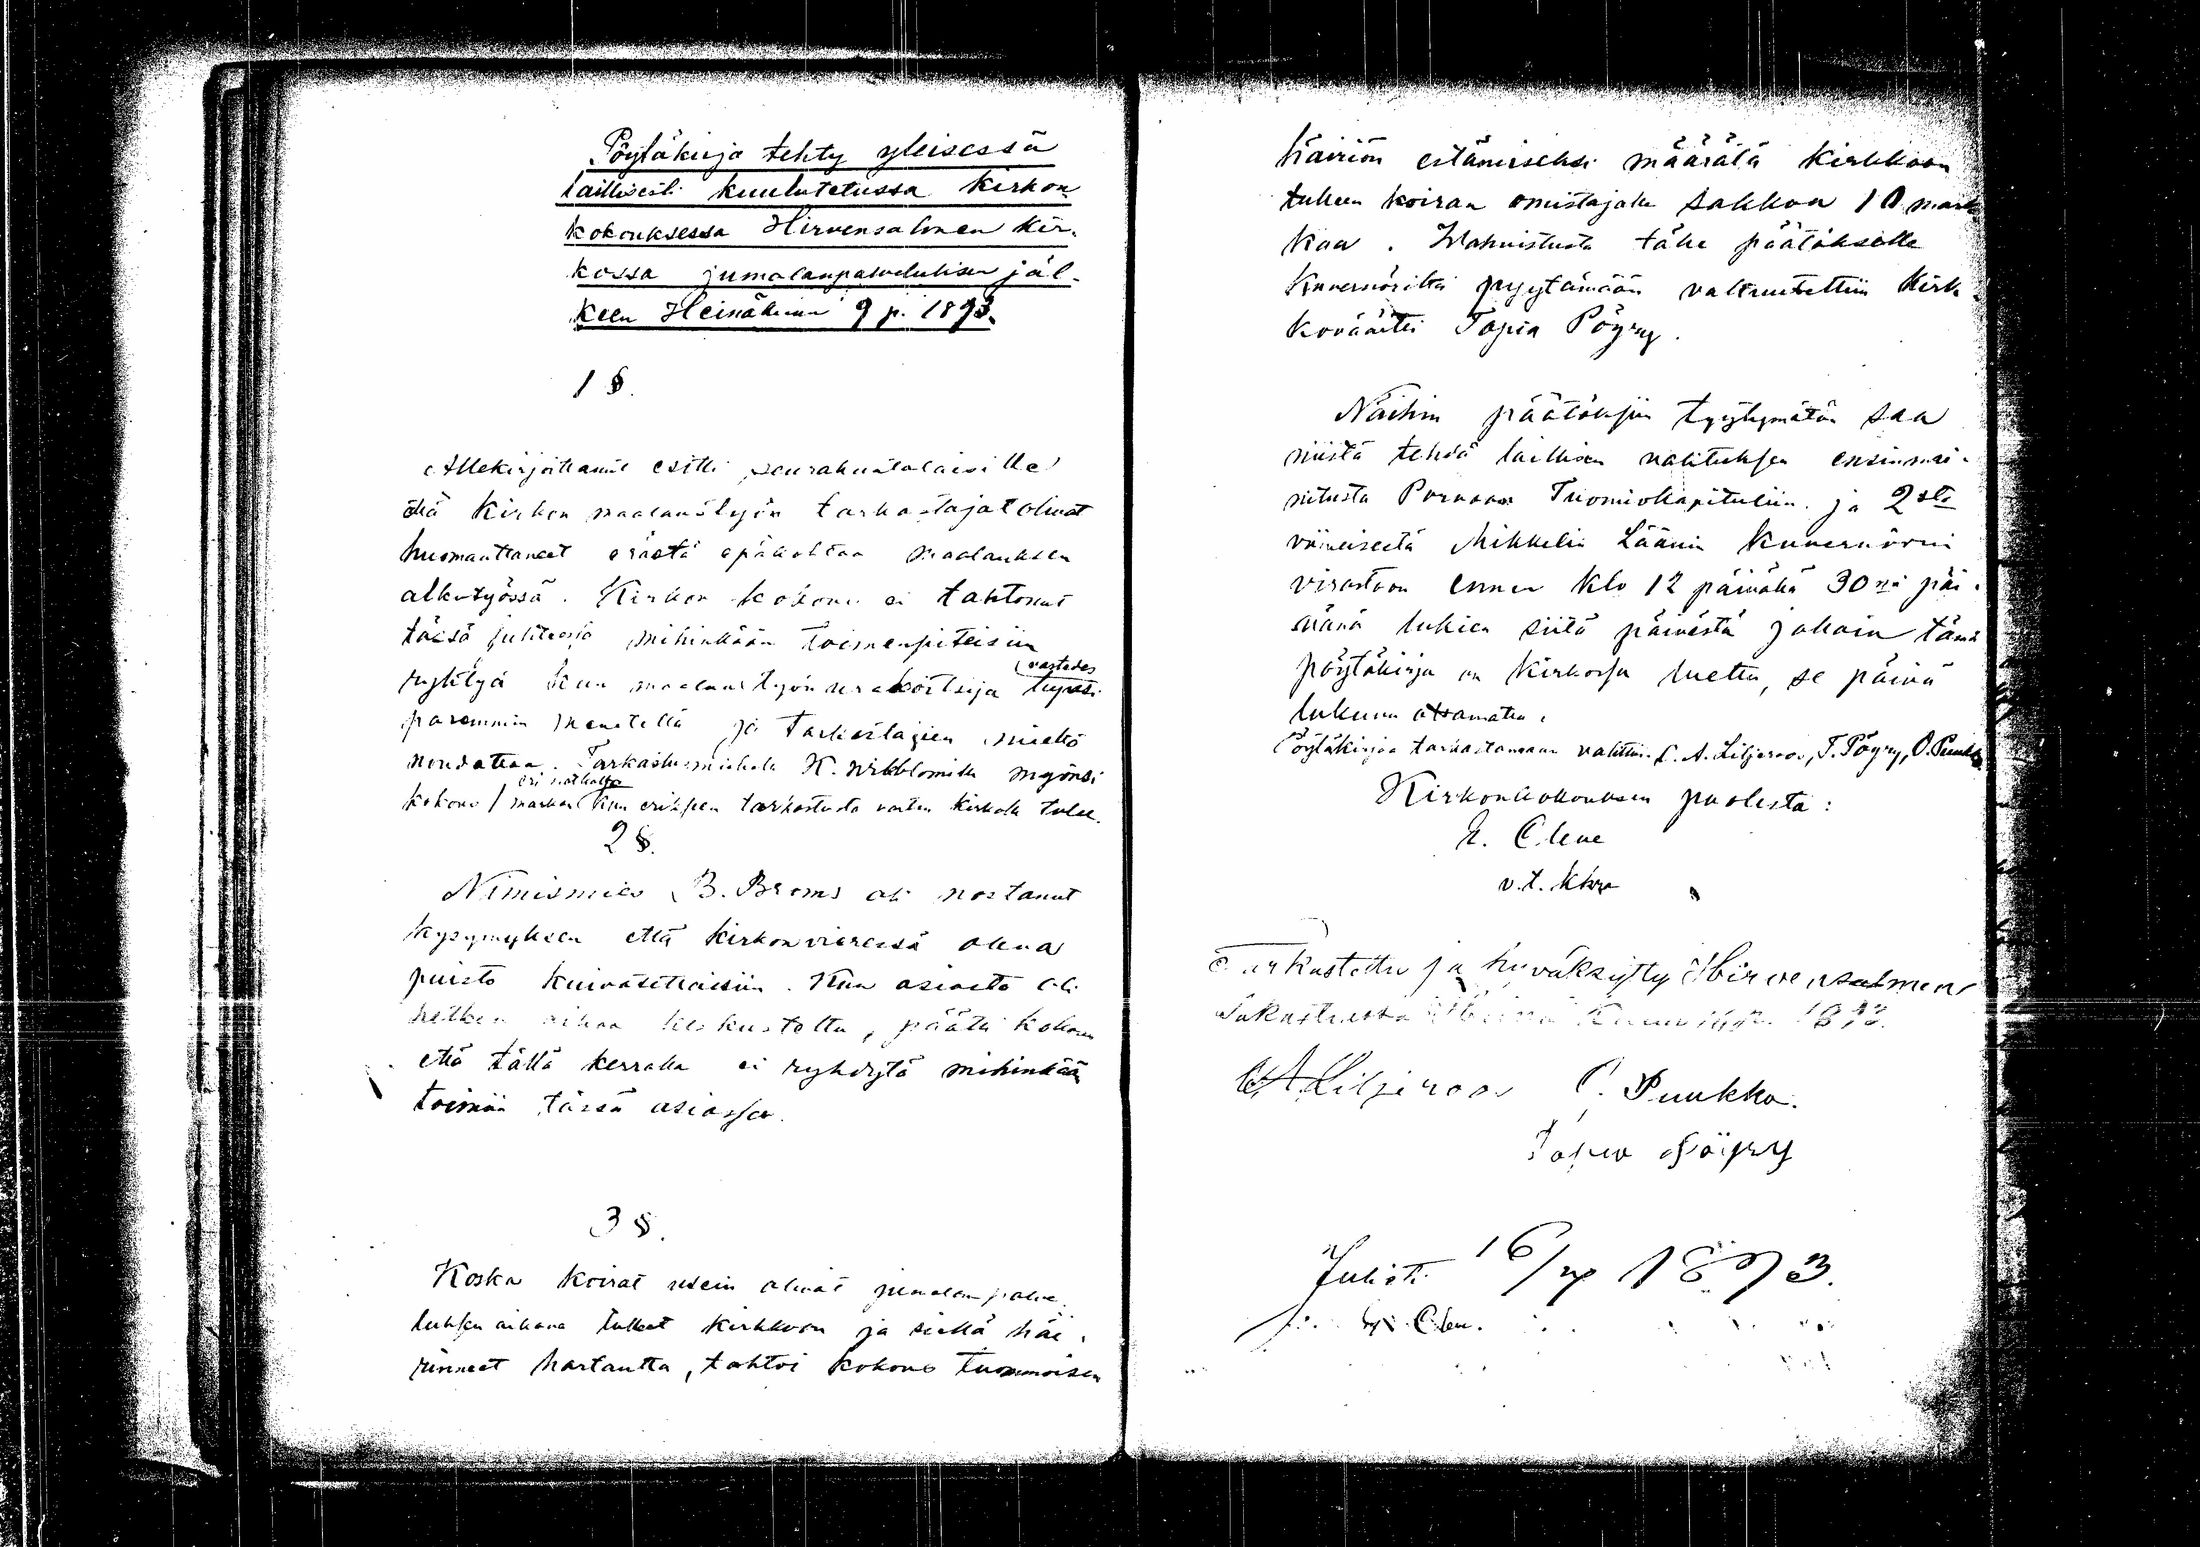 Pöytäkirja tehty yleisessä
laillisesti kuulutetussa kirkon
kokouksessa Hirvensalmen kir-
kossa jumalanpalveluksen jäl-
keen Heinäkuun 9 p. 1893.
1 §.
Allekirjoittanut esitti seurakuntalaisille
että kirkon maalaustyön tarkastajat olivat
huomauttaneet erästä epäkohtaa maalauksen
alkutyössä. Kirkon kokous ei tahtonut
tässä mihinkään toimenpiteisiin
ryhtyä kun maalaustyön urakoitsija lupasi
(vastedes
paremmin menetellä ja tarkastajien mieltä
noudattaa. Tarkastusmiehelle K. Wikblomille myönsi
kokous / markan kun erikseen tarkastusta varten kirkolle tulee.
eri matkalta
2 §.
Nimismies B. Broms oli nostanut
kysymyksen että kirkon vieressä oleva
puisto kuivatettaisiin. Kun asiasta oli
hetken aikaa keskusteltu, päätti kokous
että tällä kerralla ei ryhdytä mihinkään
toimiin tässä asiassa.
3 §.
Koska koirat usein olivat jumalanpalve-
luksen aikana tulleet kirkkoon ja siellä häi-
rinneet hartautta, tahtoi kokous tuommoisen
häiriön estämiseksi määrätä kirkkoon
tulleen koiran omistajalle sakkoa 10 mark
kaa. Wahvistusta tälle päätökselle
Kuvernöriltä pyytämään valtuutettiin kirk-
koväärti Topia Pöyry.
Näihin päätöksiin tyytymätön saa
niistä tehdä laillisen valituksen ensinmai-
nitusta Porvoon Tuomiokapituliin ja 2sta
viimeisestä Mikkelin Läänin Kuvernörin
virastoon ennen klo 12 päivällä 30nä päi-
vänä lukien siitä päivästä jolloin tämä
pöytäkirja on kirkossa luettu, se päivä
lukuun ottamatta.
Pöytäkirjaa tarkastamaan valittiin C. A. Liljeroos, T. Pöyry, O. Puukka
Kirkonkokouksen puolesta:
K. Cleve
v.t. khra
Tarkastettu ja hyväksytty Hirvensalmen
Sakastissa Heinä Kuun 1893.
C A Liljeroos O. Puukka.
Topia Pöyry
Julisti 16/VII 1893.
K. Cleve.